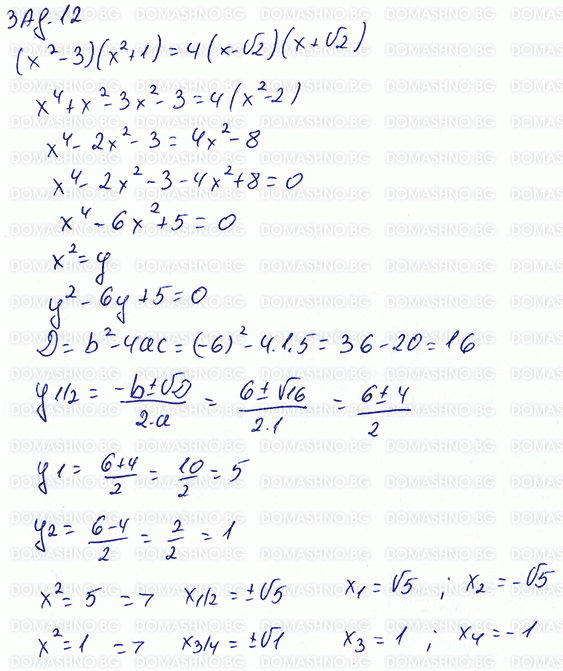 Зад. 12
(x²-3)(x²+1) = 4(x-√2)(x+√2)
x⁴+x²-3x²-3 = 4(x²-2)
x⁴-2x²-3 = 4x²-8
x⁴-2x²-3-4x²+8 = 0
x⁴-6x²+5 = 0
x² = y
y²-6y+5 = 0
D = b²-4ac = (-6)²-4.1.5 = 36-20 = 16
y1/2 = (-b±√D)/(2.a) = (6±√16)/(2.1) = (6±4)/2
y1 = (6+4)/2 = 10/2 = 5
y2 = (6-4)/2 = 2/2 = 1
x² = 5 => x1/2 = ±√5 x1 = √5 ; x2 = -√5
x² = 1 => x3/4 = ±√1 x3 = 1 ; x4 = -1
DOMASHNO.BG